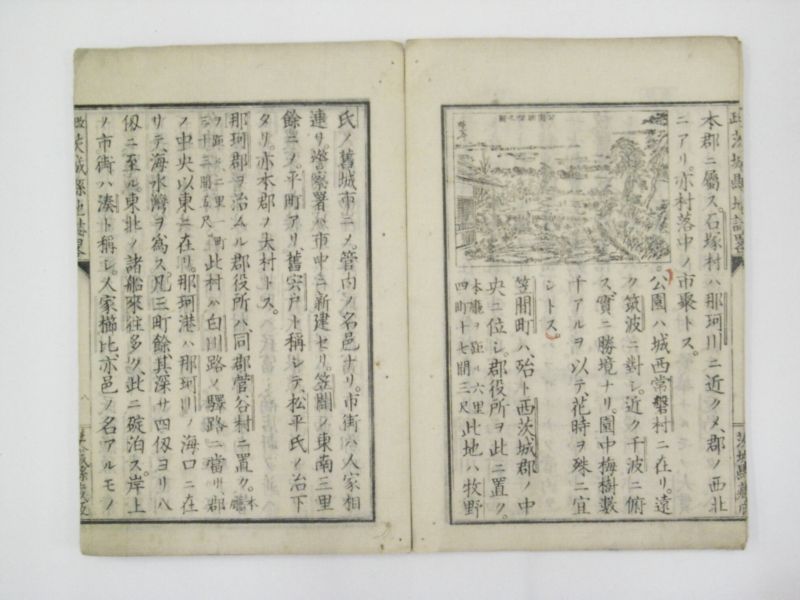 本郡ニ屬ス石塚村ハ那珂川ニ近クメ、郡ノ西北
ニアリ。亦村落中ノ市聚トス。
公園ハ城西常磐村ニ在リ。遠
ク筑波ニ對シ。近ク千波ニ俯
ス、實ニ勝境ナリ。園中梅樹數
千アルヲ以テ、花時ヲ殊ニ宜
シトス。
笠間町ハ、殆ト西茨城郡ノ中
央ニ位シ。郡役所ヲ此ニ置ク。
本廳ヲ距ル六里
四町十七間三尺
此地ハ牧野
氏ノ舊城市ニメ。管内ノ名邑ナリ。市街ハ人家相
連リ。警察署ハ市中ニ新建セリ。笠間ノ東南三里
餘ニメ。平町アリ、舊宍戸ト稱シテ、松平氏ノ治下
タリ。亦本郡ノ大村トス。
那珂郡ヲ治ムル郡役所ハ、同郡菅谷村ニ置ク。
本廳
ヲ距ル二里一町
三十三間五尺
此村ハ白川路ノ驛路ニ當リ郡
ノ中央以東ニ在リ。那珂港ハ那珂川ノ海口ニ在
リテ、海水灣ヲ爲ス。凡三町餘、其深サ四仭ヨリ八
仭ニ至ル東北ノ諸船來往多ク、此ニ碇泊ス。岸上
ノ市街ハ湊ト稱シ。人家櫛比亦邑ノ名アルモノ